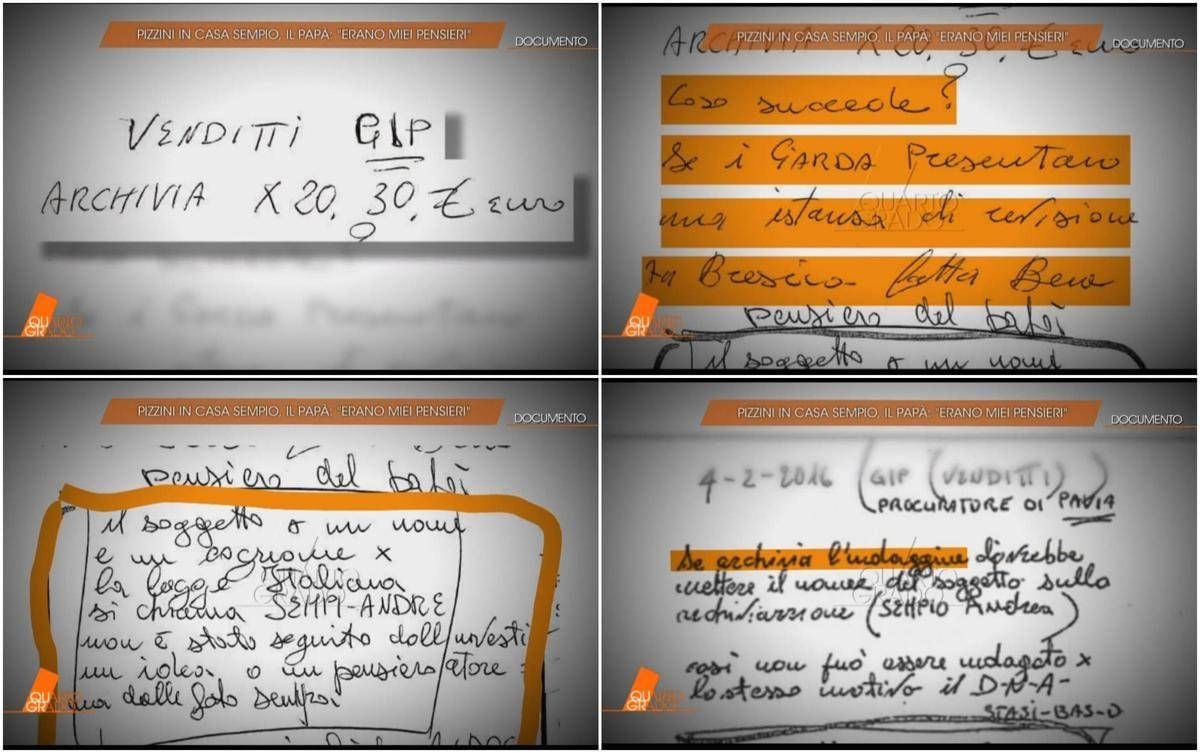 PIZZINI IN CASA SEMPIO, IL PAPÀ: "ERANO MIEI PENSIERI"
DOCUMENTO
VENDITTI GIP
ARCHIVIA X 20. 30. € euro
QUARTO GRADO
PIZZINI IN CASA SEMPIO, IL PAPÀ: "ERANO MIEI PENSIERI"
DOCUMENTO
ARCHIVIA X 20. 30. € euro
Cosa succede?
Se i GARDA Presentano
una istansa di revisione
Brescia fatta Bene
pensiero del
il soggetto a un nome
QUARTO GRADO
QUARTO GRADO
PIZZINI IN CASA SEMPIO, IL PAPÀ: "ERANO MIEI PENSIERI"
DOCUMENTO
pensiero del
il soggetto a un nome
e un cognome x
la legge Italiana
si chiama SEMPI-ANDRE
non è stato seguito dall'investi
un idea o un pensiero atore
ma dalle foto
QUARTO GRADO
QUARTO GRADO
PIZZINI IN CASA SEMPIO, IL PAPÀ: "ERANO MIEI PENSIERI"
DOCUMENTO
4-2-2016 (GIP (VENDITTI))
(PROCURATORE DI PAVIA
Se archivia l'indaggine dovrebbe
mettere il nome del soggetto sulla
(SEMPIO Andrea)
cosi non può essere indagato x
lo stesso motivo il D-N-A-
STASI-BAS-D
QUARTO GRADO
QUARTO GRADO